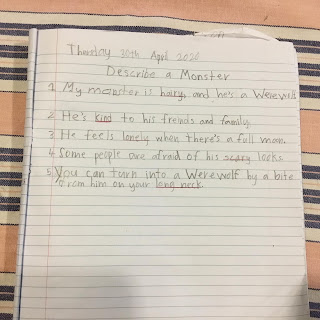 Thursday 30th April 2020
Describe a Monster
1 My monster is hairy, and he's a Werewolf.
2 He's kind to his friends and family.
3 He feels lonely when there's a full moon.
4 Some people are afraid of his scary looks.
5 You can turn into a Werewolf by a bite
from him on your long neck.